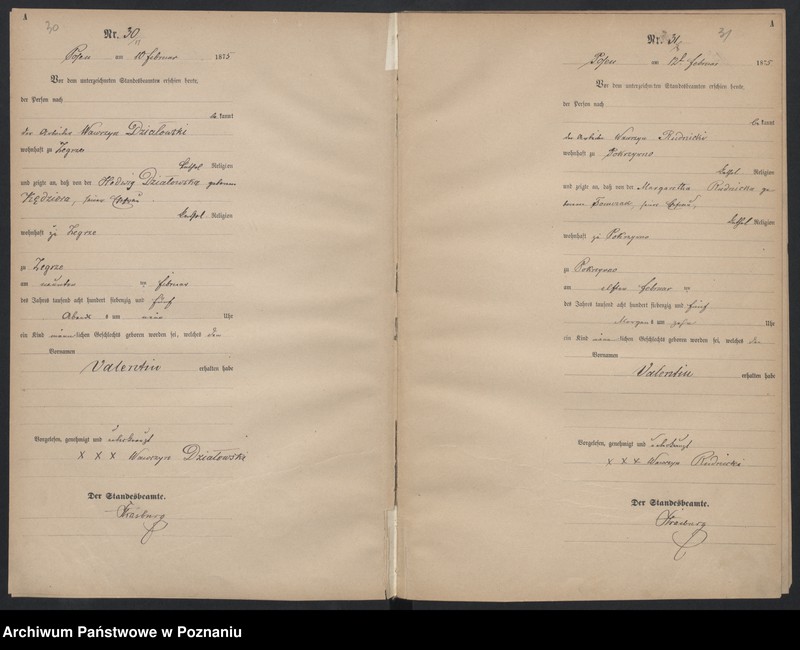 A
30
Nr. 30
Posen am 10 Februar 1875
Vor dem unterzeichneten Standesbeamten erschien heute,
der Person nach
be kannt
der Arbeiter Wawrzyn Działowski
wohnhaft zu Zegrze
kathol. Religion
und zeigte an, daß von der Hedwig Działowska geborene
Kędziora, seiner Ehefrau
kathol. Religion
wohnhaft zu Zegrze
zu Zegrze
am neunten Februar
des Jahres tausend acht hundert siebenzig und fünf
Abends um neun Uhr
ein Kind männlichen Geschlechts geboren worden sei, welches den
Vornamen
Valentin erhalten habe
Vorgelesen, genehmigt und unterkreuzt
x x x Wawrzyn Działowski
Der Standesbeamte.
A
31
Nr. 31
Posen am 12t Februar 1875
Vor dem unterzeichneten Standesbeamten erschien heute,
der Person nach
be kannt
der Arbeiter Wawrzyn Rudnicki
wohnhaft zu Pokrzywno
kathol. Religion
und zeigte an, daß von der Margaretha Rudnicka ge-
borene Tomczak, seiner Ehefrau,
kathol. Religion
wohnhaft zu Pokrzywno
zu Pokrzywno
am elften Februar
des Jahres tausend acht hundert siebenzig und fünf
Morgens um zehn Uhr
ein Kind männlichen Geschlechts geboren worden sei, welches den
Vornamen
Valentin erhalten habe
Vorgelesen, genehmigt und unterkreuzt
x x x Wawrzyn Rudnicki
Der Standesbeamte.
Archiwum Państwowe w Poznaniu